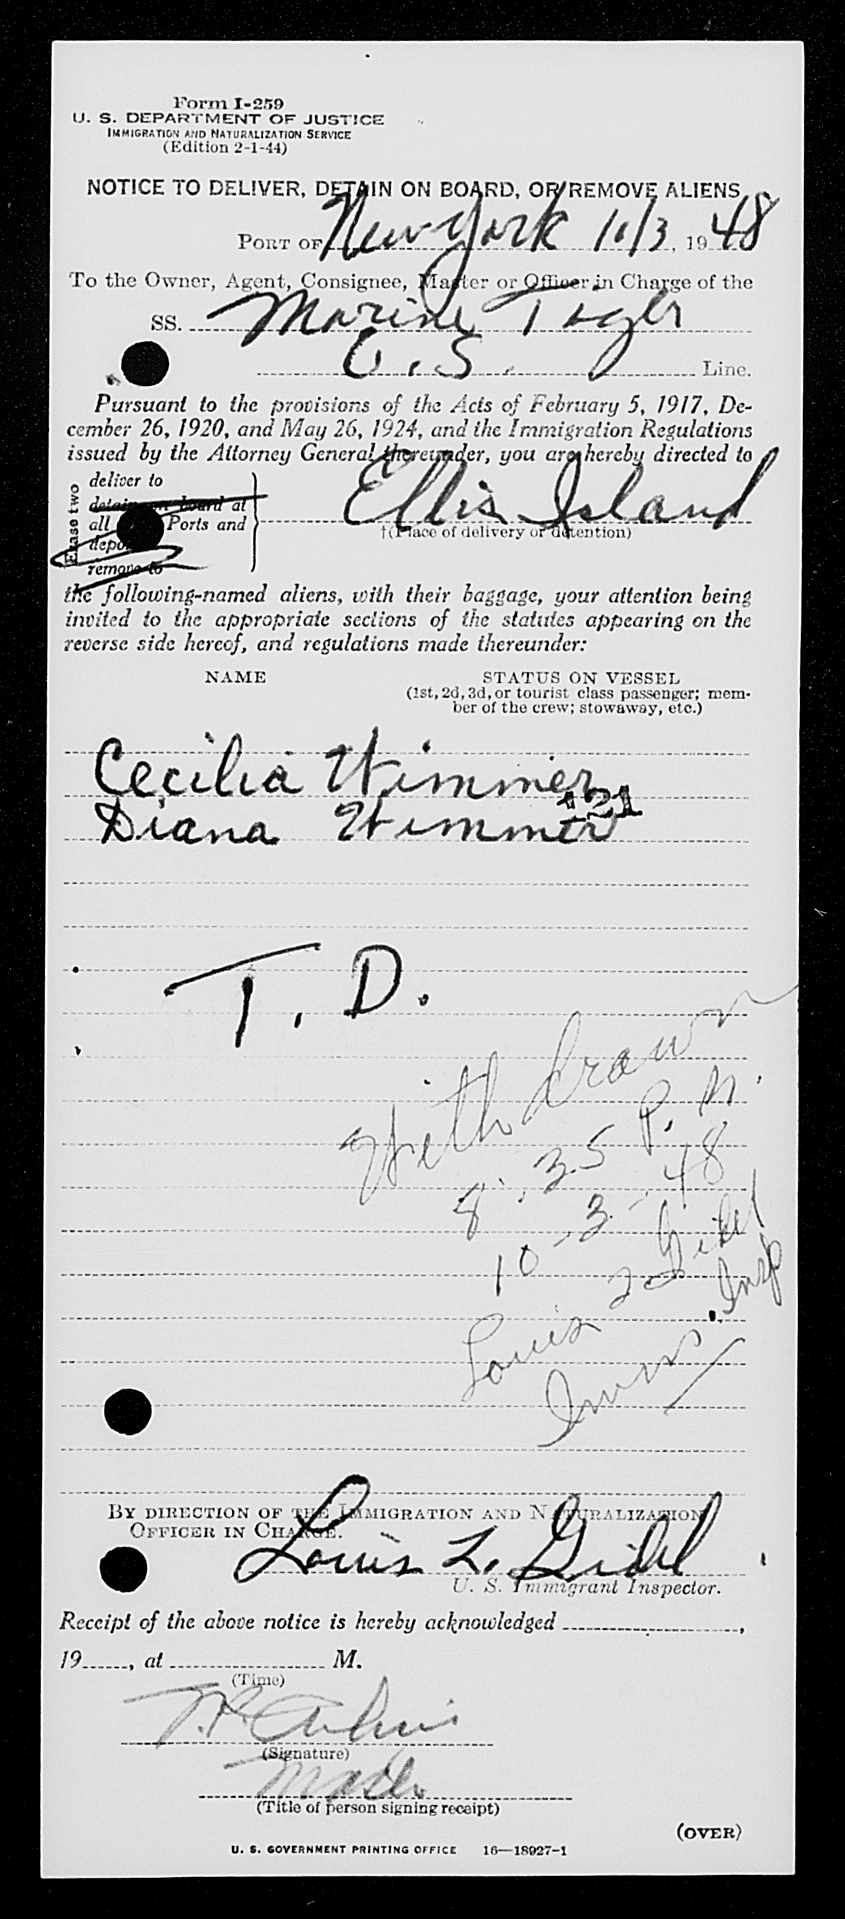 Form I-259
U. S. DEPARTMENT OF JUSTICE
IMMIGRATION AND NATURALIZATION SERVICE
(Edition 2-1-44)
NOTICE TO DELIVER, DETAIN ON BOARD, OR REMOVE ALIENS
PORT OF New York 10/3, 1948
To the Owner, Agent, Consignee, Master or Officer in Charge of the
SS. Marine Tiger
U.S. Line.
Pursuant to the provisions of the Acts of February 5, 1917, De-
cember 26, 1920, and May 26, 1924, and the Immigration Regulations
issued by the Attorney General thereunder, you are hereby directed to
Erase two
deliver to
detain on board at
all Ports and
remove to
Ellis Island
†(Place of delivery or detention)
the following-named aliens, with their baggage, your attention being
invited to the appropriate sections of the statutes appearing on the
reverse side hereof, and regulations made thereunder:
NAME STATUS ON VESSEL
(1st, 2d, 3d, or tourist class passenger; mem-
ber of the crew; stowaway, etc.)
Cecilia Wimmer
121
Diana Wimmer
T. D.
Withdrawn
8:35 P.M.
10-3-48
Louis L Gidel
Imm. Insp
BY DIRECTION OF THE IMMIGRATION AND NATURALIZATION
OFFICER IN CHARGE.
Louis L. Gidel
U. S. Immigrant Inspector.
Receipt of the above notice is hereby acknowledged ,
19 , at M.
(Time)
(Signature)
(Title of person signing receipt)
(OVER)
U. S. GOVERNMENT PRINTING OFFICE 16—18927-1